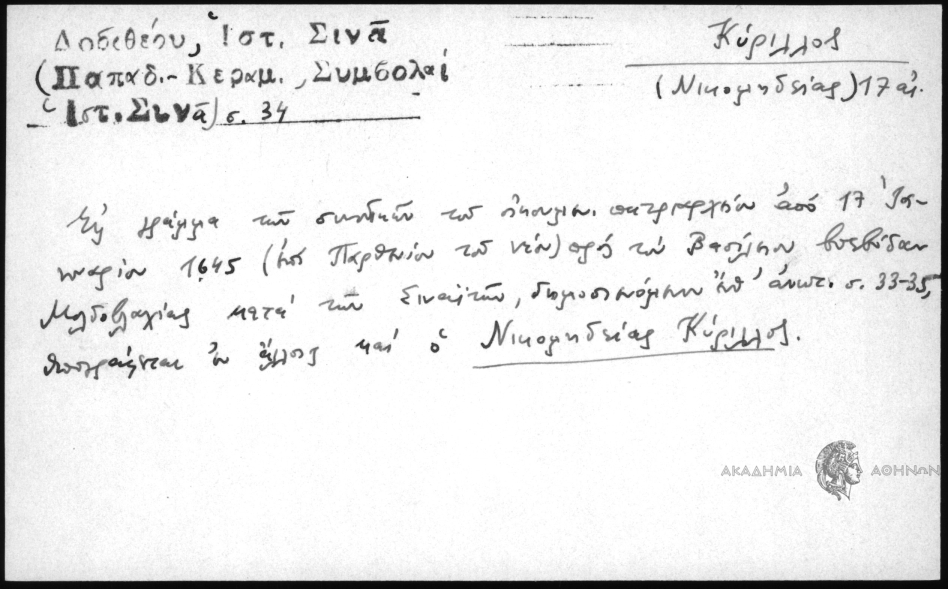 Δοσιθέου, Ἱστ. Σινᾶ
(Παπαδ.-Κεραμ., Συμβολαί
Ἱστ. Σινᾶ) σ. 34
Κύριλλος
(Νικομηδείας) 17 αἰ.
Εἰς γράμμα τῶν συνοδικῶν τοῦ οἰκουμεν. πατριαρχείου ἀπό 17 Ἰα-
νουαρίου 1645 (ἐπί Παρθενίου τοῦ νέου) πρός τόν Βασίλειον βοεβόδαν
Μολδοβλαχίας μετά τῶν Σιναϊτῶν, δημοσιευόμενον ἐπ' ἀνωτ. σ. 33-35,
ὑπογράφεται ἐν ἄλλοις καί ὁ Νικομηδείας Κύριλλος.
ΑΚΑΔΗΜΙΑ ΑΘΗΝΩΝ